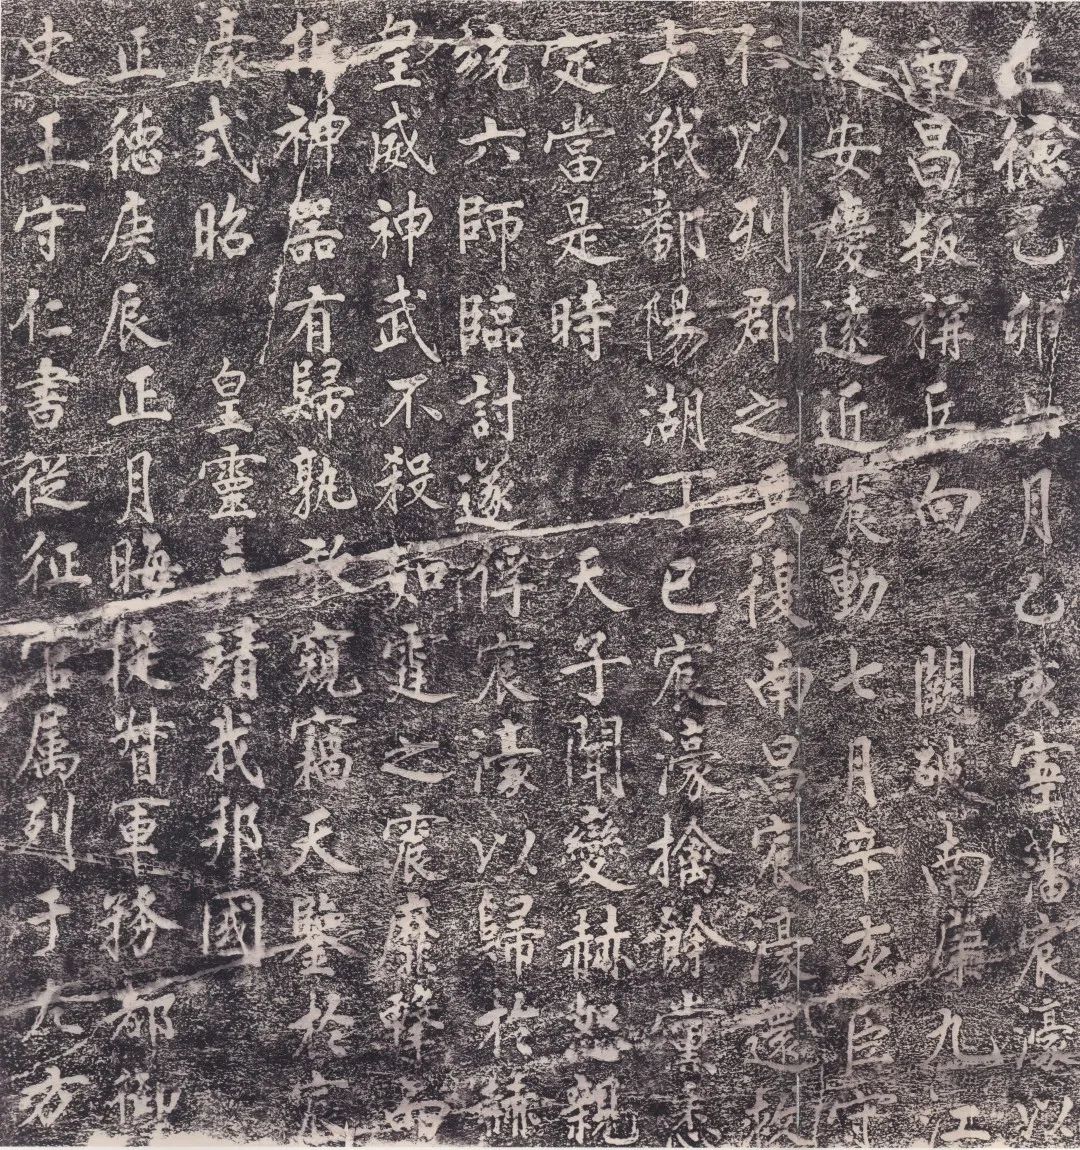 正德己卯六月乙亥寧藩宸濠以
南昌叛稱兵向 闕破南康九江
攻安慶遠近震動七月辛亥臣守
仁以列郡之兵復南昌宸濠還救
大戰鄱陽湖丁巳宸濠擒餘黨悉
定當是時 天子聞變赫怒親
統六師臨討遂俘宸濠以歸於赫
皇威神武不殺如霆之震靡擊而
折神器有歸孰敢窺竊天鑒於宸
濠式昭 皇靈嘉靖我邦國
正德庚辰正月晦提督軍務都御
史王守仁書從征官属列于左方